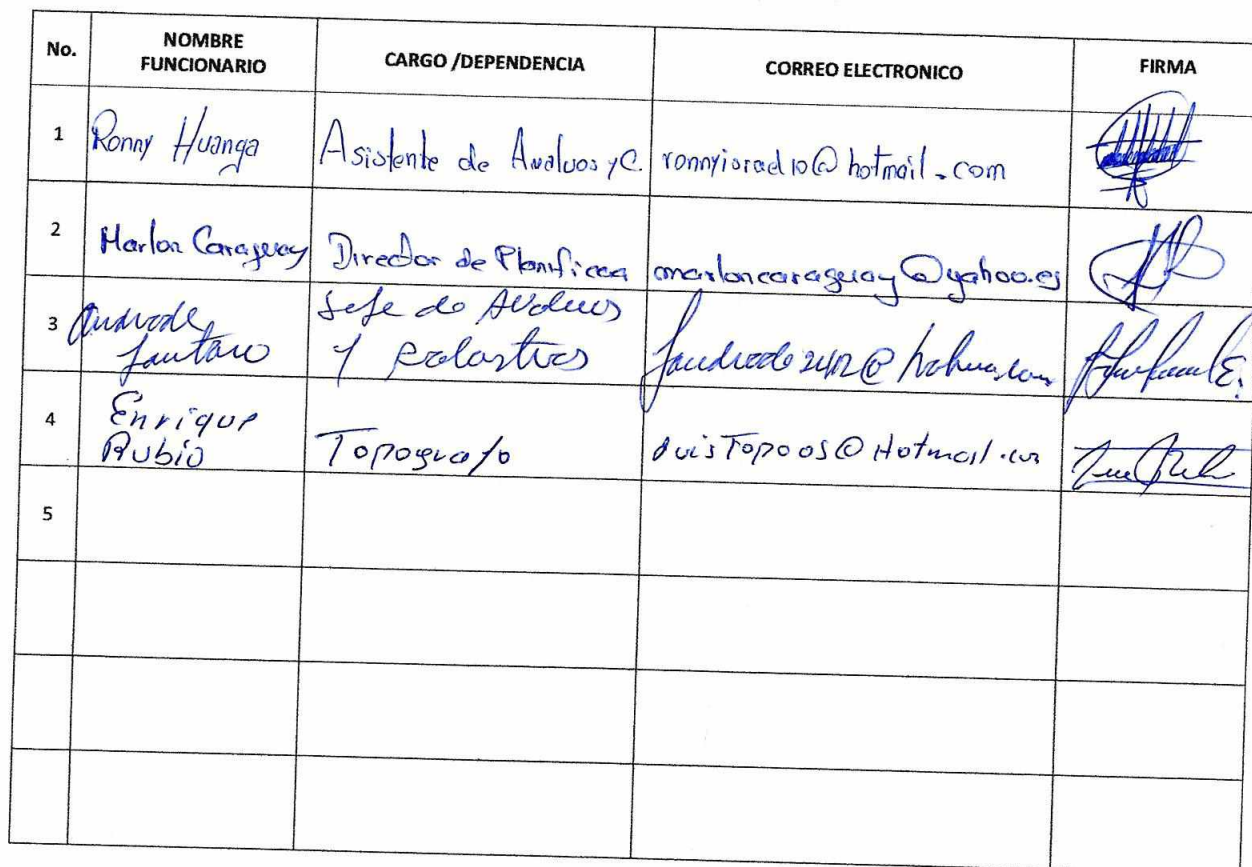 No. NOMBRE FUNCIONARIO CARGO /DEPENDENCIA CORREO ELECTRONICO FIRMA
1 Ronny Huanga Asistente de Avaluos y C. ronnyisrael10@hotmail.com
2 Marlon Caraguay Director de Planificca marloncaraguay@yahoo.es
3 Andrade Lautaro Jefe de Avaluos y
4 Enrique Rubio Topografo
5